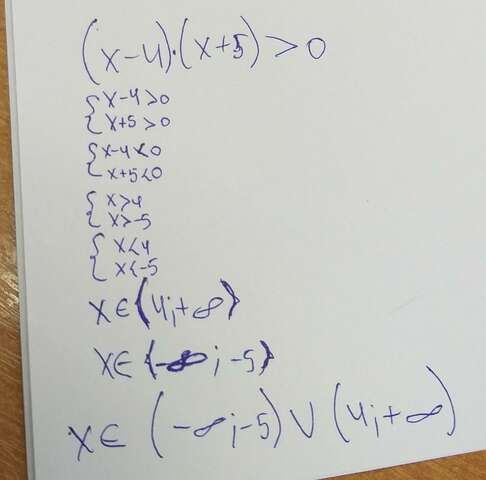 (x-4)·(x+5)>0
{x-4>0
{x+5>0
{x-4<0
{x+5<0
{x>4
{x>-5
{x<4
{x<-5
x∈(4;+∞)
x∈(-∞;-5)
x∈(-∞;-5)∪(4;+∞)